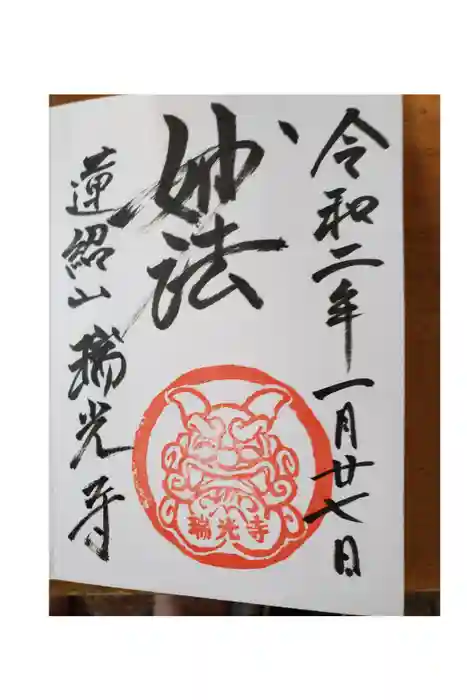 令和二年一月廿七日
妙法
瑞光寺
蓮紹山 瑞光寺